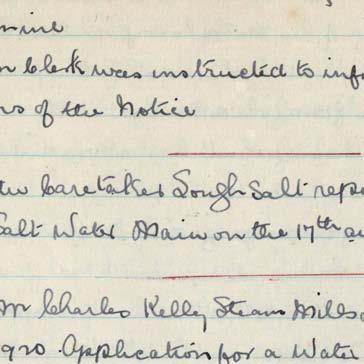 mine
n Clerk was instructed to info
rs of the Notice
the Caretaker Lough Salt repo
Salt Water Main on the 17th a
Mr Charles Kelly Steam Mills
1920. Application for a Water